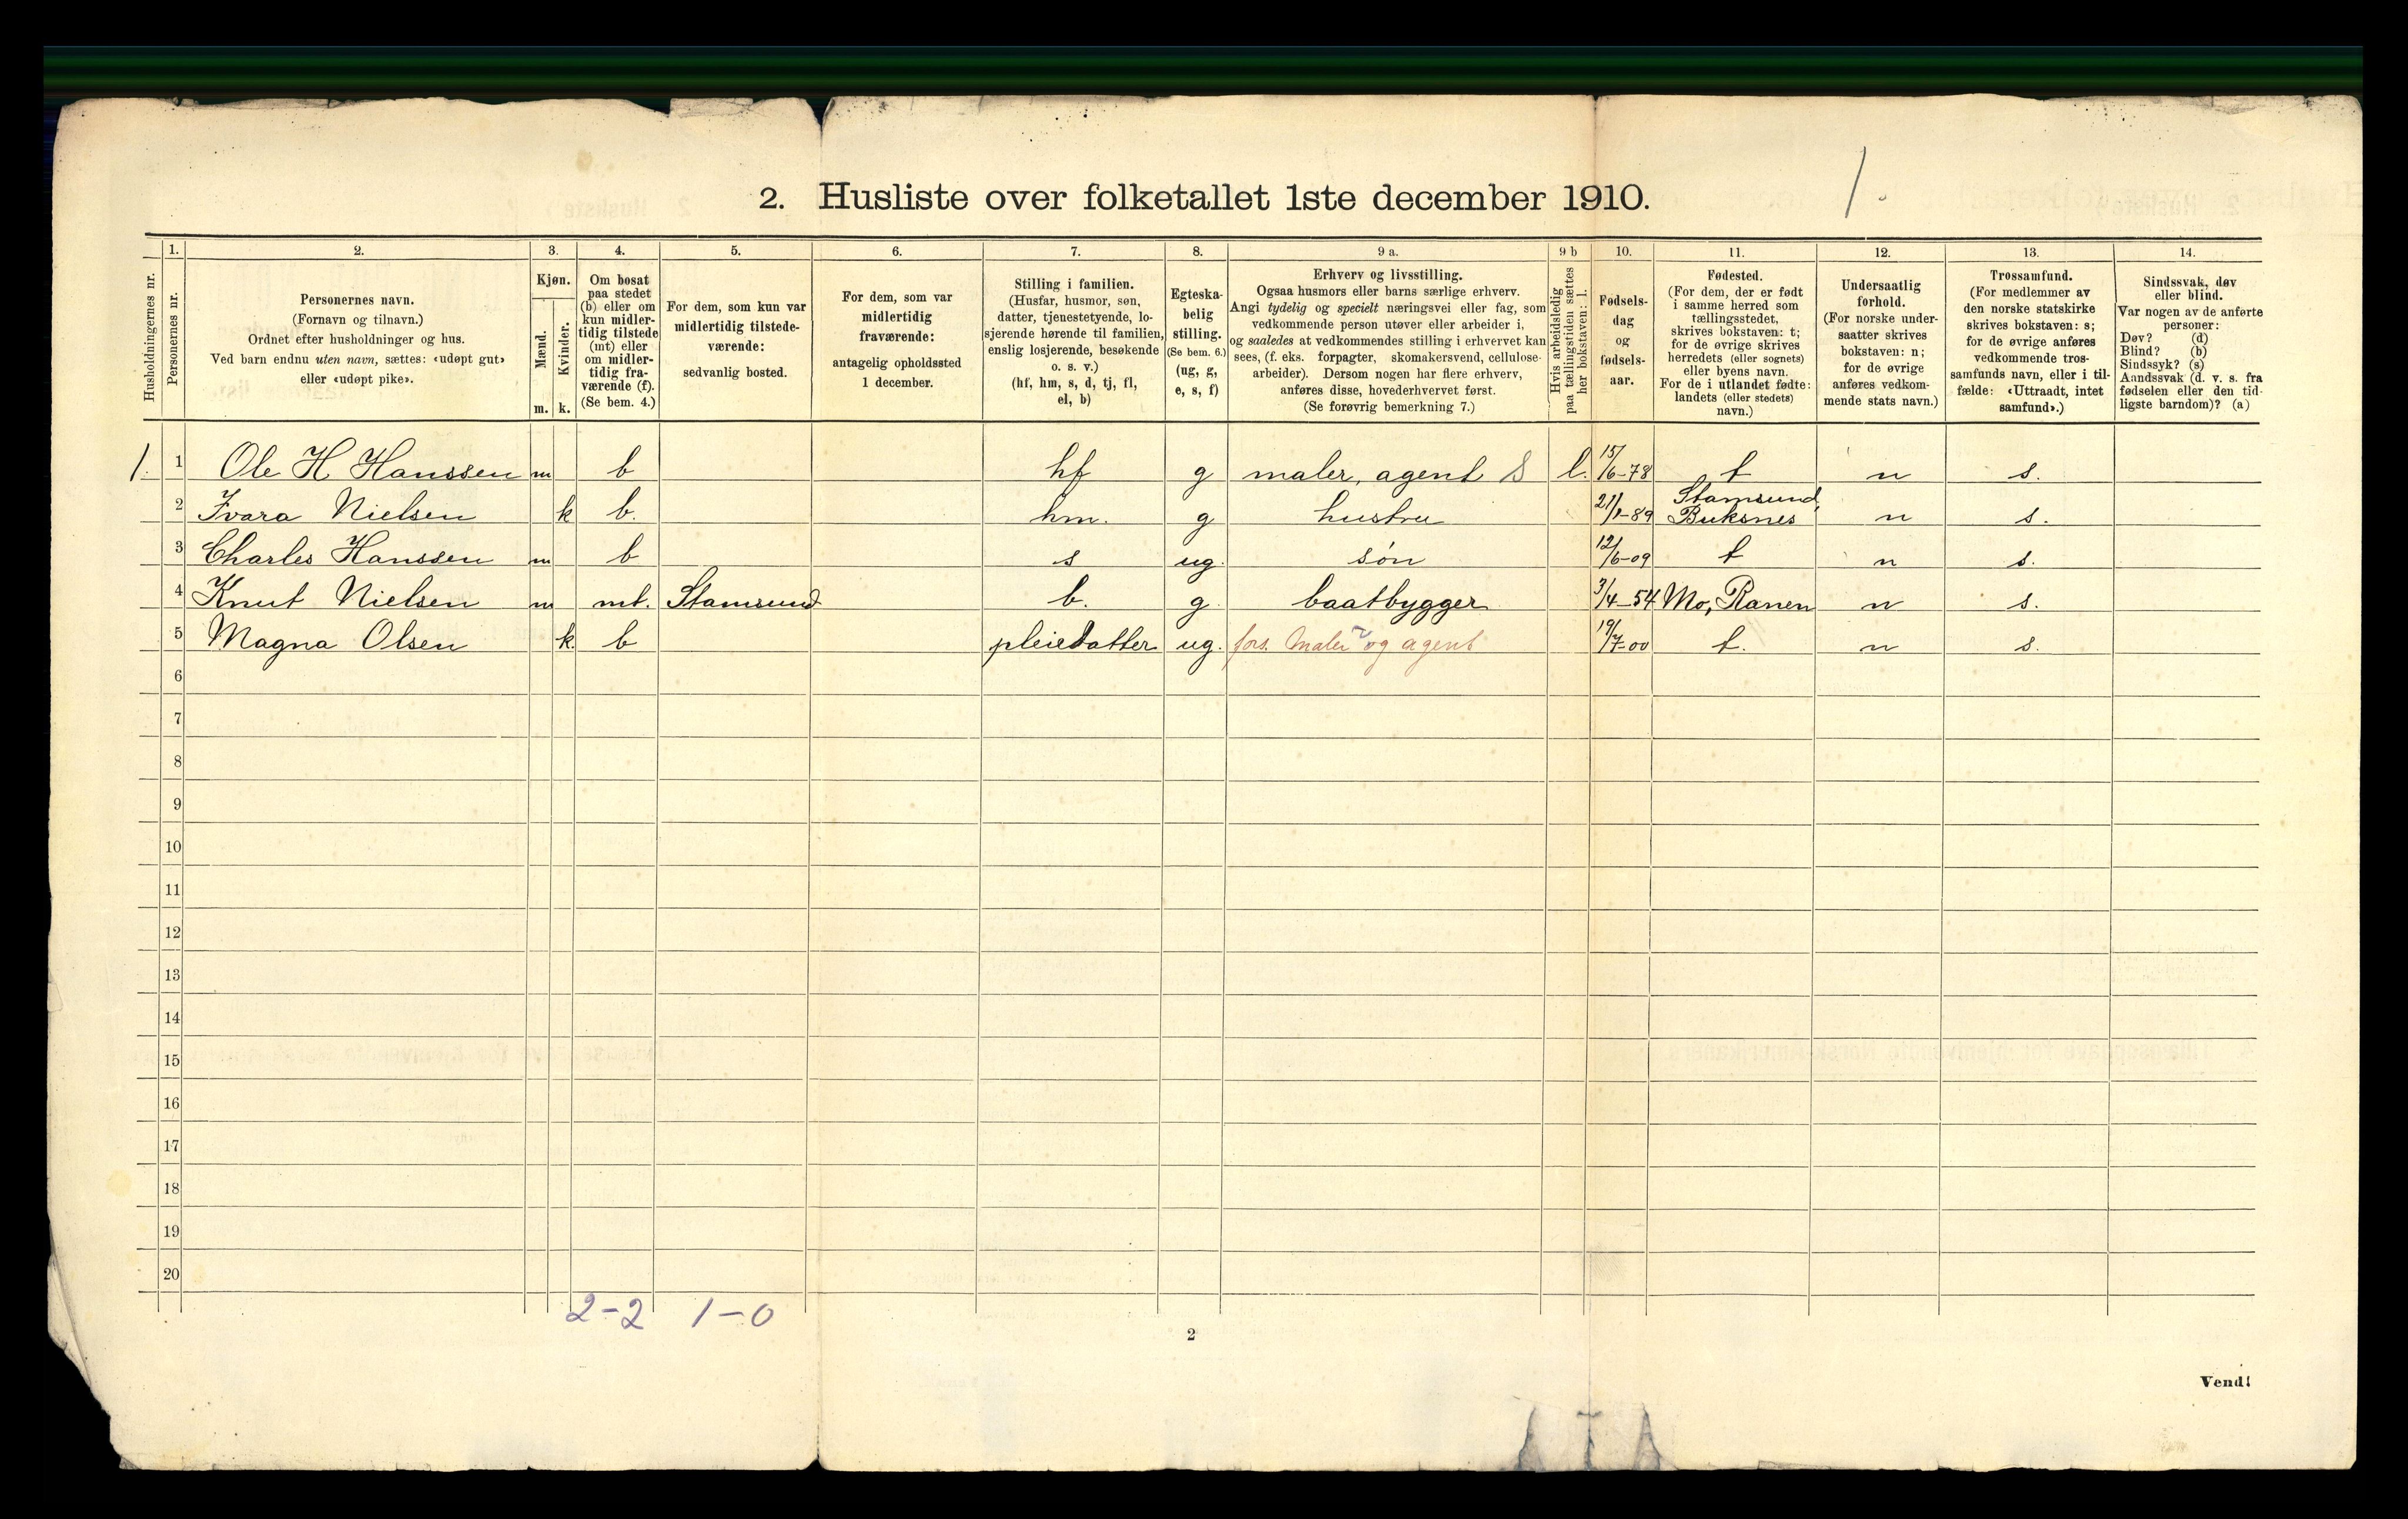 1.
2. Husliste over folketallet 1ste december 1910.
Husholdningernes nr.
1.
Personernes nr.
2.
Personernes navn.
(Fornavn og tilnavn.)
Ordnet efter husholdninger og hus.
Ved barn endnu uten navn, sættes: «udøpt gut»
eller «udøpt pike».
3.
Kjøn.
Mænd.
Kvinder.
m. k.
4.
Om bosat
paa stedet
(b) eller om
kun midler-
tidig tilstede
(mt) eller
om midler-
tidig fra-
værende (f).
(Se bem. 4.)
5.
For dem, som kun var
midlertidig tilstede-
værende:
sedvanlig bosted.
6.
For dem, som var
midlertidig
fraværende:
antagelig opholdssted
1 december.
7.
Stilling i familien.
(Husfar, husmor, søn,
datter, tjenestetyende, lo-
sjerende hørende til familien,
enslig losjerende, besøkende
o. s. v.)
(hf, hm, s, d, tj, fl,
el, b)
8.
Egteska-
belig
stilling.
(Se bem. 6.)
(ug, g,
e, s, f)
9 a.
Erhverv og livsstilling.
Ogsaa husmors eller barns særlige erhverv.
Angi tydelig og specielt næringsvei eller fag, som
vedkommende person utøver eller arbeider i,
og saaledes at vedkommendes stilling i erhvervet kan
sees, (f. eks. forpagter, skomakersvend, cellulose-
arbeider). Dersom nogen har flere erhverv,
anføres disse, hovederhvervet først.
(Se forøvrig bemerkning 7.)
9 b
Hvis arbeidsledig
paa tællingstiden sættes
her bokstaven: l.
10.
Fødsels-
dag
og
fødsels-
aar.
11.
Fødested.
(For dem, der er født
i samme herred som
tællingsstedet,
skrives bokstaven: t;
for de øvrige skrives
herredets (eller sognets)
eller byens navn.
For de i utlandet fødte:
landets (eller stedets)
navn.)
12.
Undersaatlig
forhold.
(For norske under-
saatter skrives
bokstaven: n;
for de øvrige
anføres vedkom-
mende stats navn.)
13.
Trossamfund.
(For medlemmer av
den norske statskirke
skrives bokstaven: s;
for de øvrige anføres
vedkommende tros-
samfunds navn, eller i til-
fælde: «Uttraadt, intet
samfund».)
14.
Sindssvak, døv
eller blind.
Var nogen av de anførte
personer:
Døv? (d)
Blind? (b)
Sindssyk? (s)
Aandssvak (d. v. s. fra
fødselen eller den tid-
ligste barndom)? (a)
1. 1 Ole H Hanssen m b hf g maler, agent S l. 15/6-78 t n s.
2 Ivara Nielsen k b. hm. g hustru 21/1-89 Stamsund, Buksnes n s.
3 Charles Hanssen m b s ug. søn 12/6-09 t n s.
4 Knut Nielsen m mt. Stamsund b. g. baatbygger 3/4-54 Mo, Ranen n s.
5 Magna Olsen k. b pleiedatter ug. fors. Maler og agent 19/7-00 t. n s.
6
7
8
9
10
11
12
13
14
15
16
17
18
19
20
2-2 1-0
2
Vend!